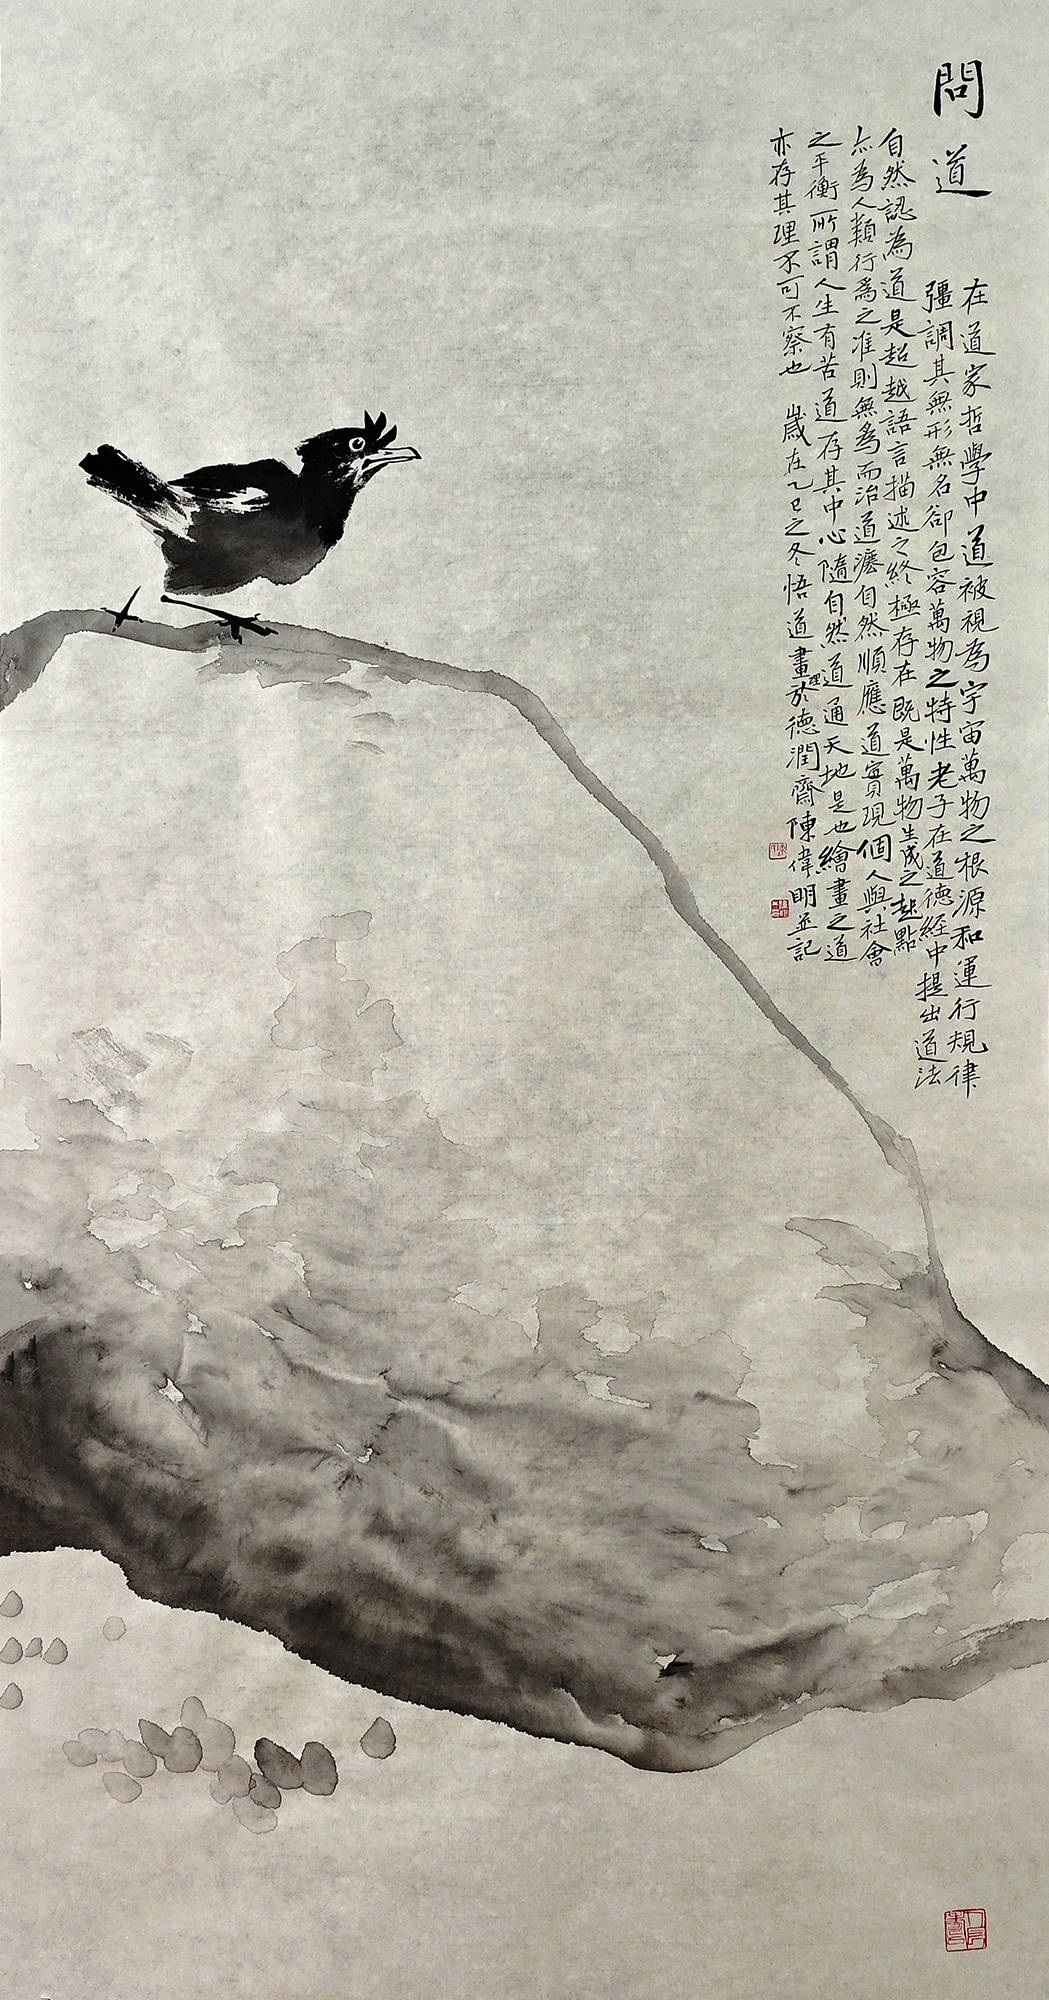 問道
在道家哲學中道被視為宇宙萬物之根源和運行規律
彊調其無形無名卻包容萬物之特性老子在道德經中提出道法
自然認為道是超越語言描述之終極存在既是萬物生成之起點
亦為人類行為之准則無為而治道遵自然順應道實現個人與社會
之平衡所謂人生有苦道存其中心隨自然道通天地是也繪畫之道
亦存其理不可不察也 歲在乙巳之冬悟道畫理於德潤齋陳偉明並記